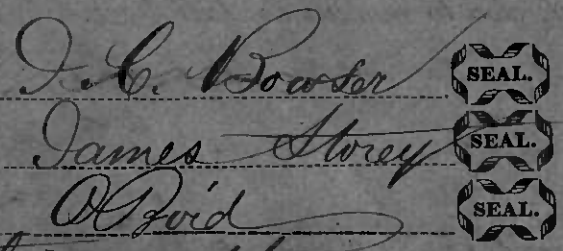 J. C. Bowser SEAL.
James Storey SEAL.
O Boid SEAL.